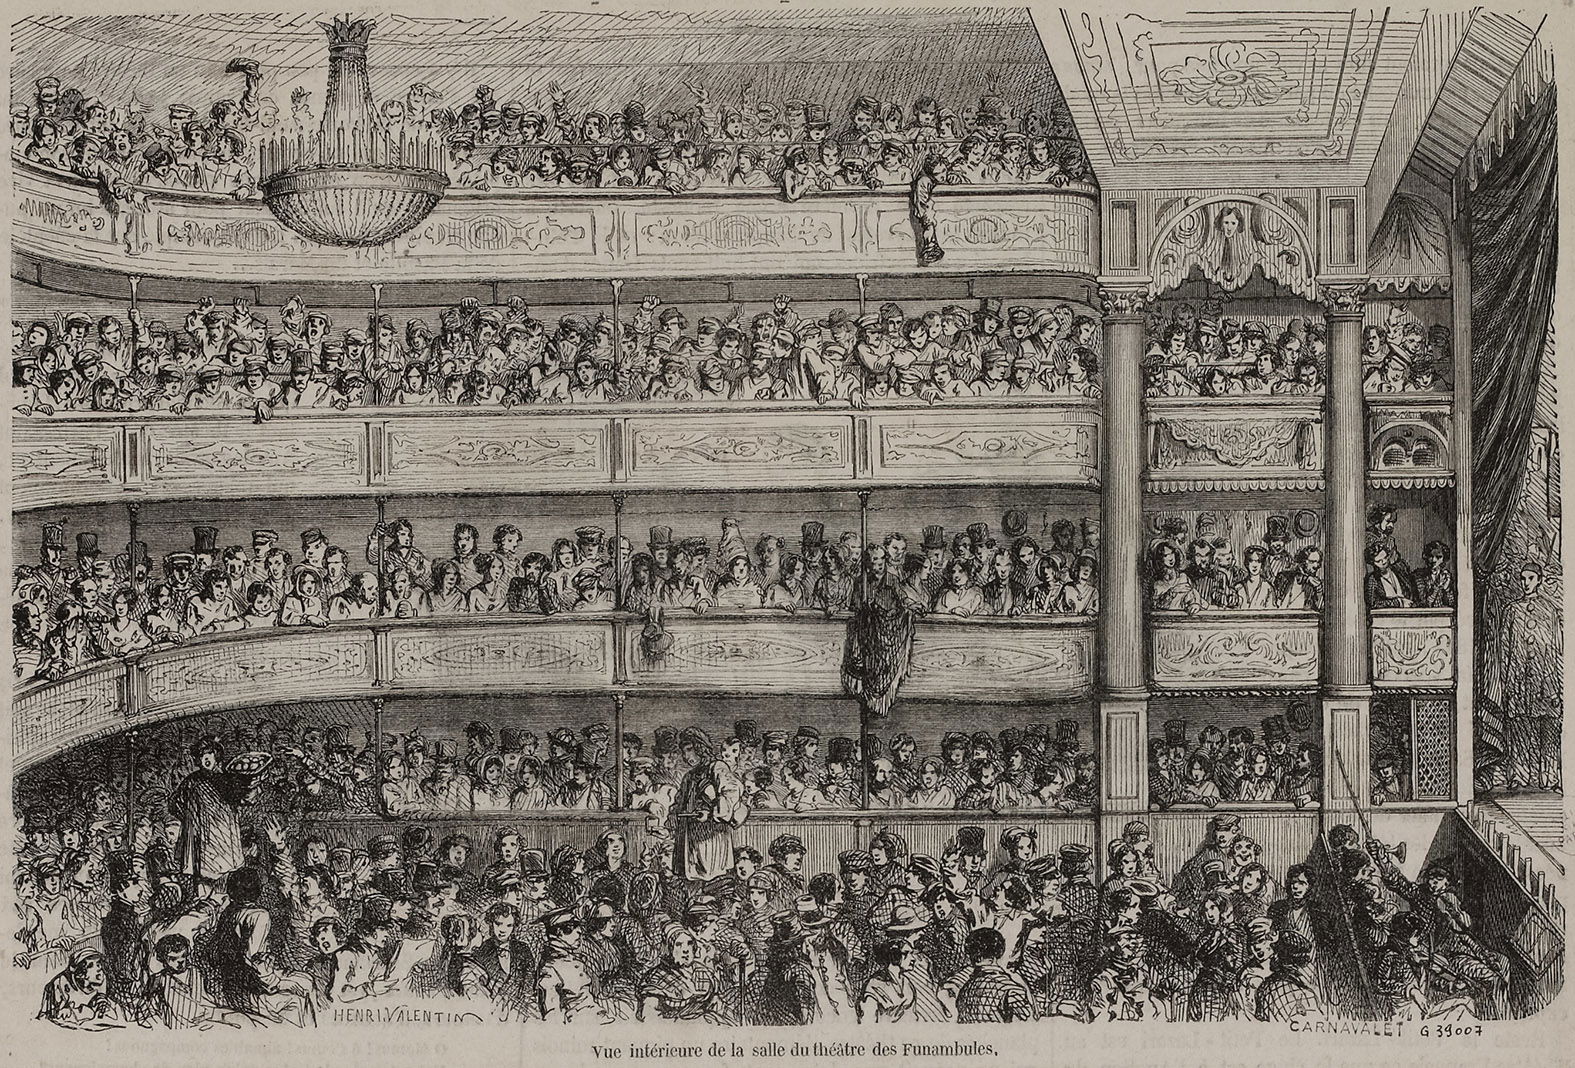 HENRI.VALENTIN
CARNAVALET G 39007
Vue intérieure de la salle du théâtre des Funambules.